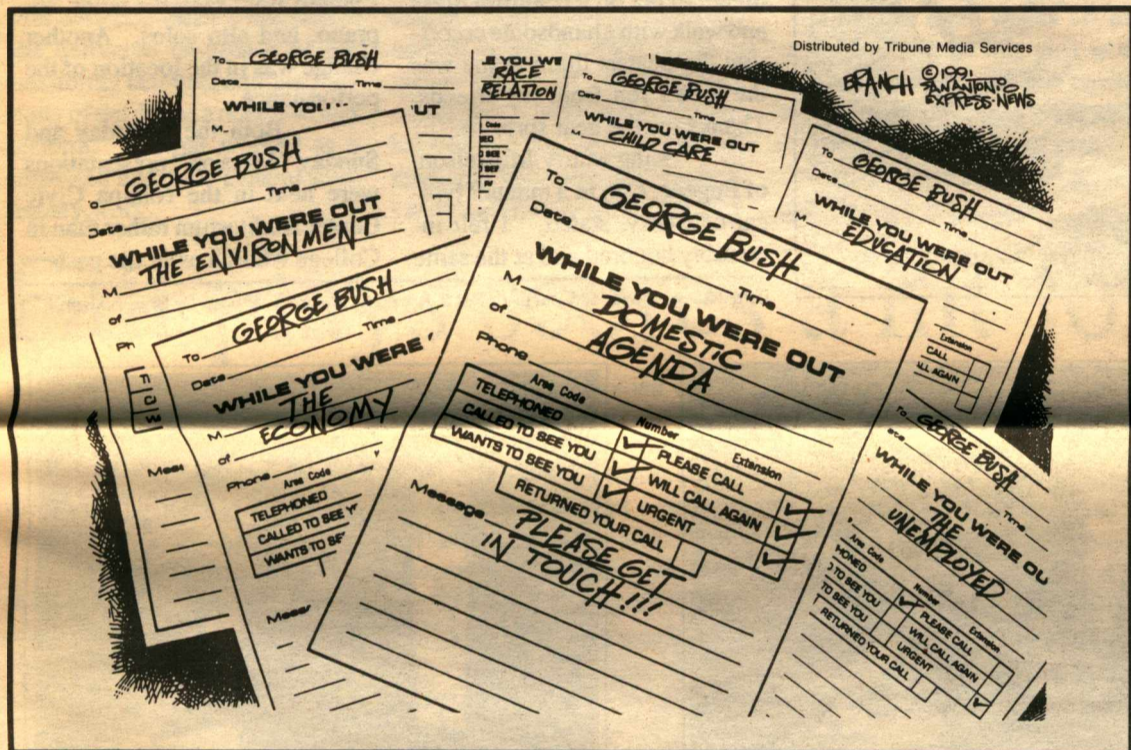 Distributed by Tribune Media Services
BRANCH ©1991
SAN ANTONIO
EXPRESS-NEWS
To GEORGE BUSH
Date Time
WHILE YOU UT
M
RACE
RELATION
Code
To GEORGE BUSH
Date Time
WHILE YOU WERE OUT
M CHILD CARE
To GEORGE BUSH
Date Time
WHILE YOU WERE OUT
M EDUCATION
Extension
CALL
ALL AGAIN
GEORGE BUSH
o Time
Date
WHILE YOU WERE OUT
THE ENVIRONMENT
M
of
Ph
Mess
GEORGE BUSH
To Time
Date
WHILE YOU WERE
THE
M ECONOMY
of
Phone Area Code
TELEPHONED
CALLED TO SEE Y
WANTS TO SE
Messa
To GEORGE BUSH
Date Time
WHILE YOU WERE OUT
M DOMESTIC
of AGENDA
Phone Area Code Number Extension
TELEPHONED ✓ PLEASE CALL ✓
CALLED TO SEE YOU ✓ WILL CALL AGAIN ✓
WANTS TO SEE YOU ✓ URGENT ✓
RETURNED YOUR CALL
Message PLEASE GET
IN TOUCH!!!
To GEORGE BUSH
ate Time
WHILE YOU WERE OU
THE
UNEMPLOYED
Area Code Number Extension
HONED ✓ PLEASE CALL
D TO SEE YOU WILL CALL AGAIN
TO SEE YOU URGENT ✓
RETURNED YOUR CALL